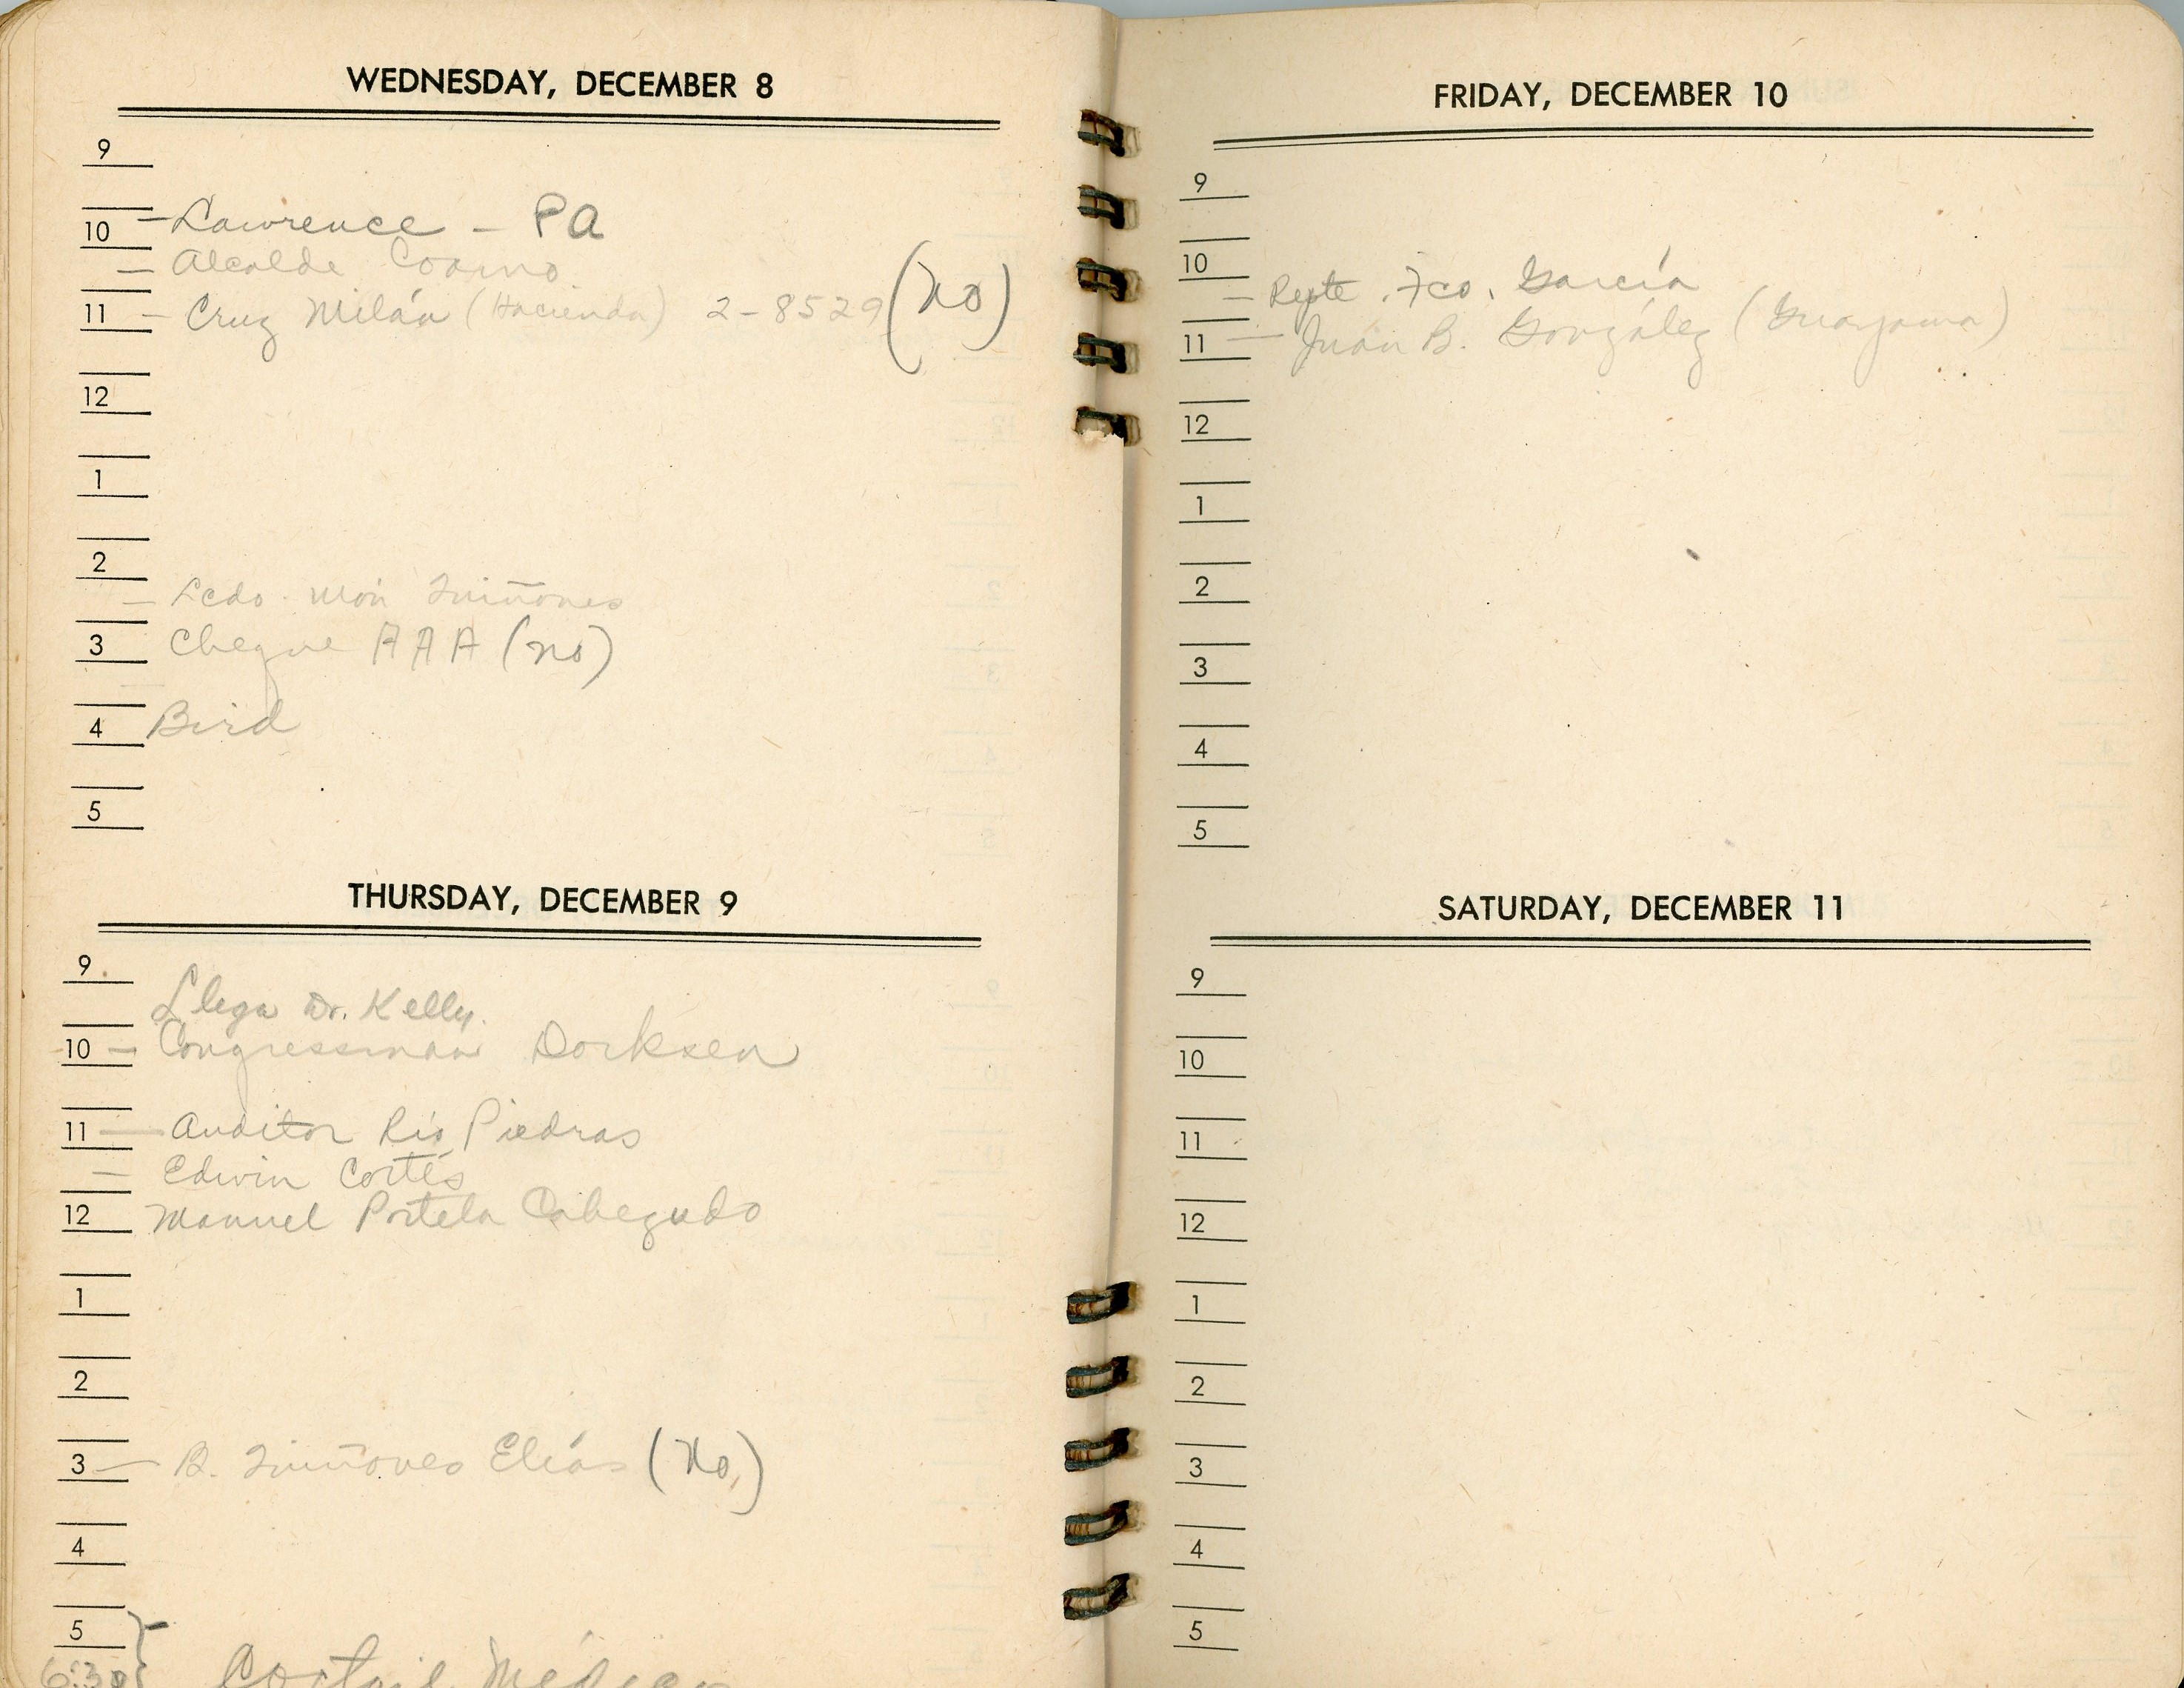 WEDNESDAY, DECEMBER 8
9
10 - Lawrence - PA
- Alcalde Coamo
11 - Cruz Milán (Hacienda) 2-8529 (No)
12
1
2
- Lcdo. Món Quiñones
3 Cheque AAA (no)
4 Bird
5
THURSDAY, DECEMBER 9
9
Llega Dr. Kelly.
10 - Congressman Dorksen
11 - Auditor Río Piedras
- Edwin Cortés
12 Manuel Portela Cabezudo
1
2
3 - B. Quiñones Elías (No)
4
5
6:30 Coctail
FRIDAY, DECEMBER 10
9
10
- Repte. Fco. García
11 - Juan B. González (Guayama)
12
1
2
3
4
5
SATURDAY, DECEMBER 11
9
10
11
12
1
2
3
4
5